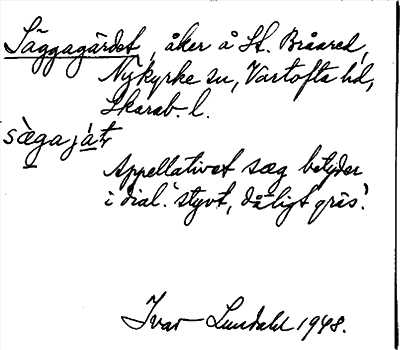 Säggagärdet, åker å St. Bråared,
Nykyrke sn, Vartofta hd,
Skarab. l.
sægajáṭ
Appellativet sæg betyder
i dial. 'styvt, dåligt gräs'.
Ivar Lundahl 1948.